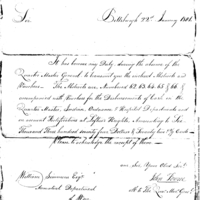 Sir, Pittsburgh 22d January 1806
It has become my Duty, during the absence of the
Quarter Master General to transmit you the enclosed Abstracts and
Vouchers. The Abstracts are Numbered 62. 63. 64. 65 & 66
accompanied with Vouchers for the Disbursements of Cash in the
Quarter Master, Indian, Ordnance & Hospital Departments and
on account Fortifications at Heights, Amounting to Six
Thousand Three hundred seventy four Dollars & Twenty
Please to acknowledge the receipt of them
Your Obed Sert
William Simmons Esqr
Accountant Department
of War